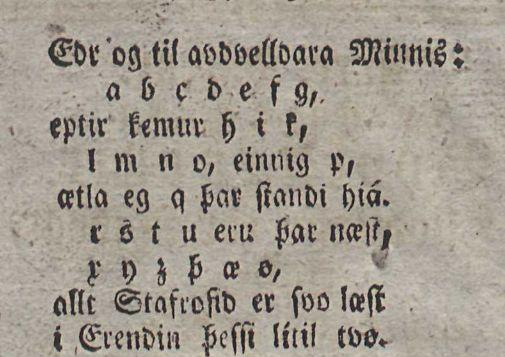 Edr og til audvelldara Minnis:
a b c d e f g,
eptir kemur h i k,
l m n o, einnig p,
ætla eg q þar standi hiá.
r s t u eru þar næst,
x y z þ æ ø,
allt Stafrofid er svo læst
i Erendin þessi lítil tvø.